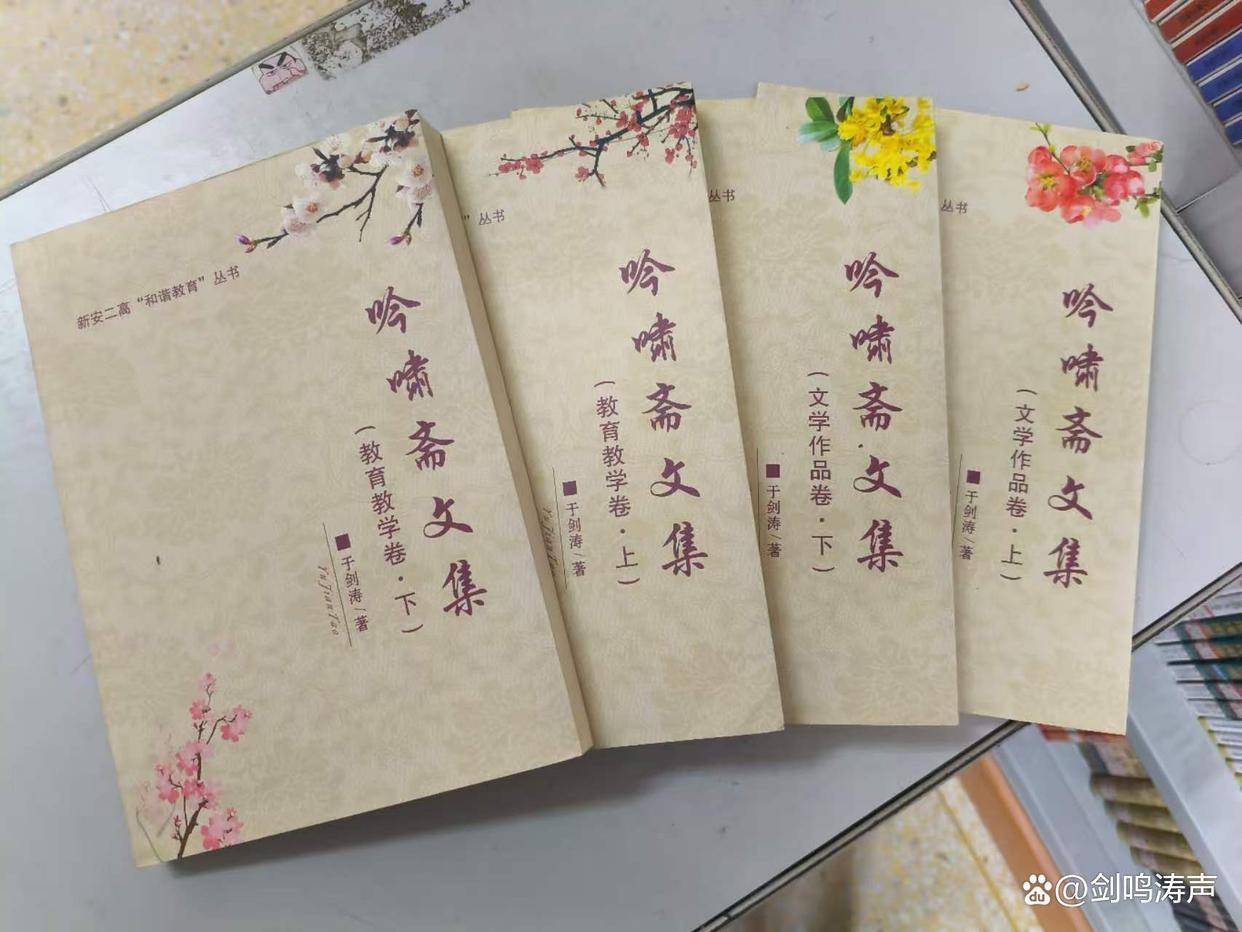 新安二高“和谐教育”丛书
吟啸斋文集
（教育教学卷·下）
■于剑涛/著
YuJianTao
”丛书
吟啸斋文集
（教育教学卷·上）
■于剑涛/著
丛书
吟啸斋文集
（文学作品卷·下）
■于剑涛/著
丛书
吟啸斋文集
（文学作品卷·上）
■于剑涛/著
du
@剑鸣涛声